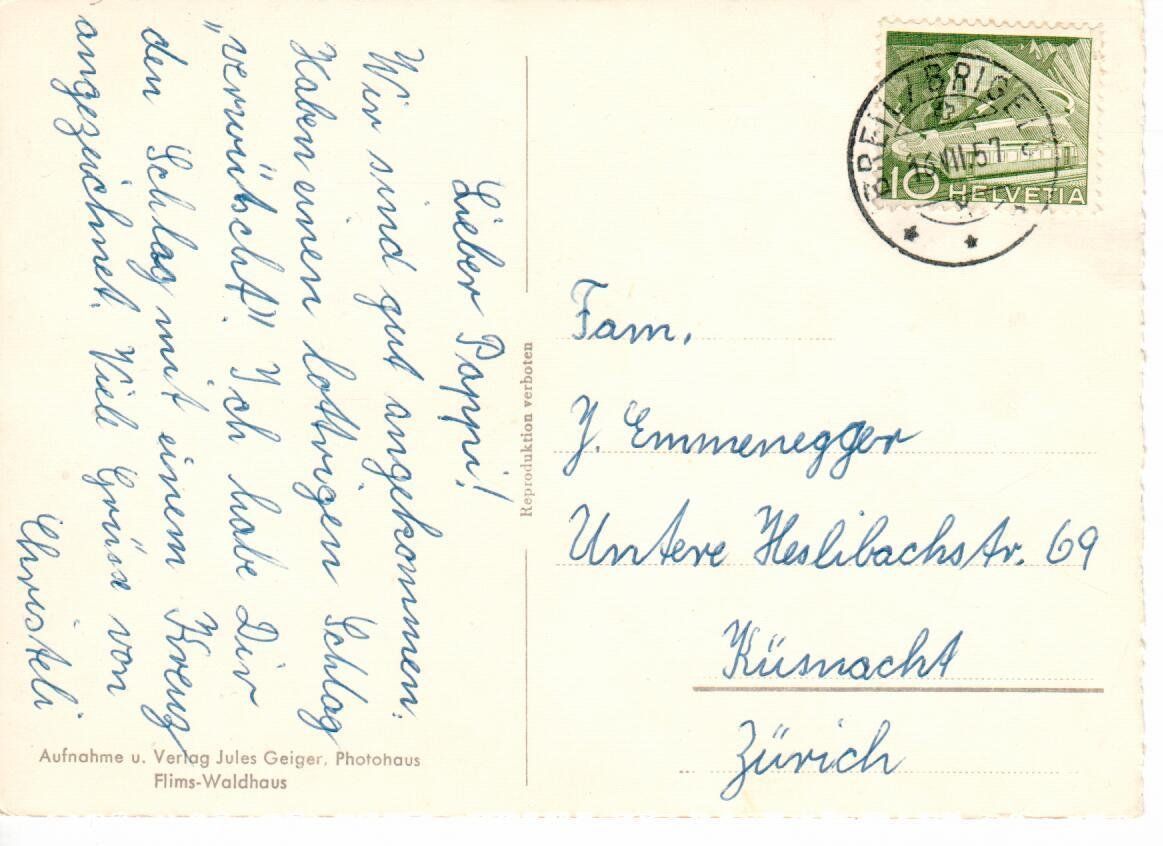 Lieber Pappi!
Wir sind gut angekommen.
Haben einen lottrigen Schlag
„verwütscht". Ich habe Dir
den Schlag mit einem Kreuz
angezeichnet. Viele Grüsse von
Christeli
Aufnahme u. Verlag Jules Geiger, Photohaus
Flims-Waldhaus
Reproduktion verboten
BREIL/BRIGELS
13.VII.57
10 HELVETIA
Fam.
J. Emmenegger
Untere Heslibachstr. 69
Küsnacht
Zürich